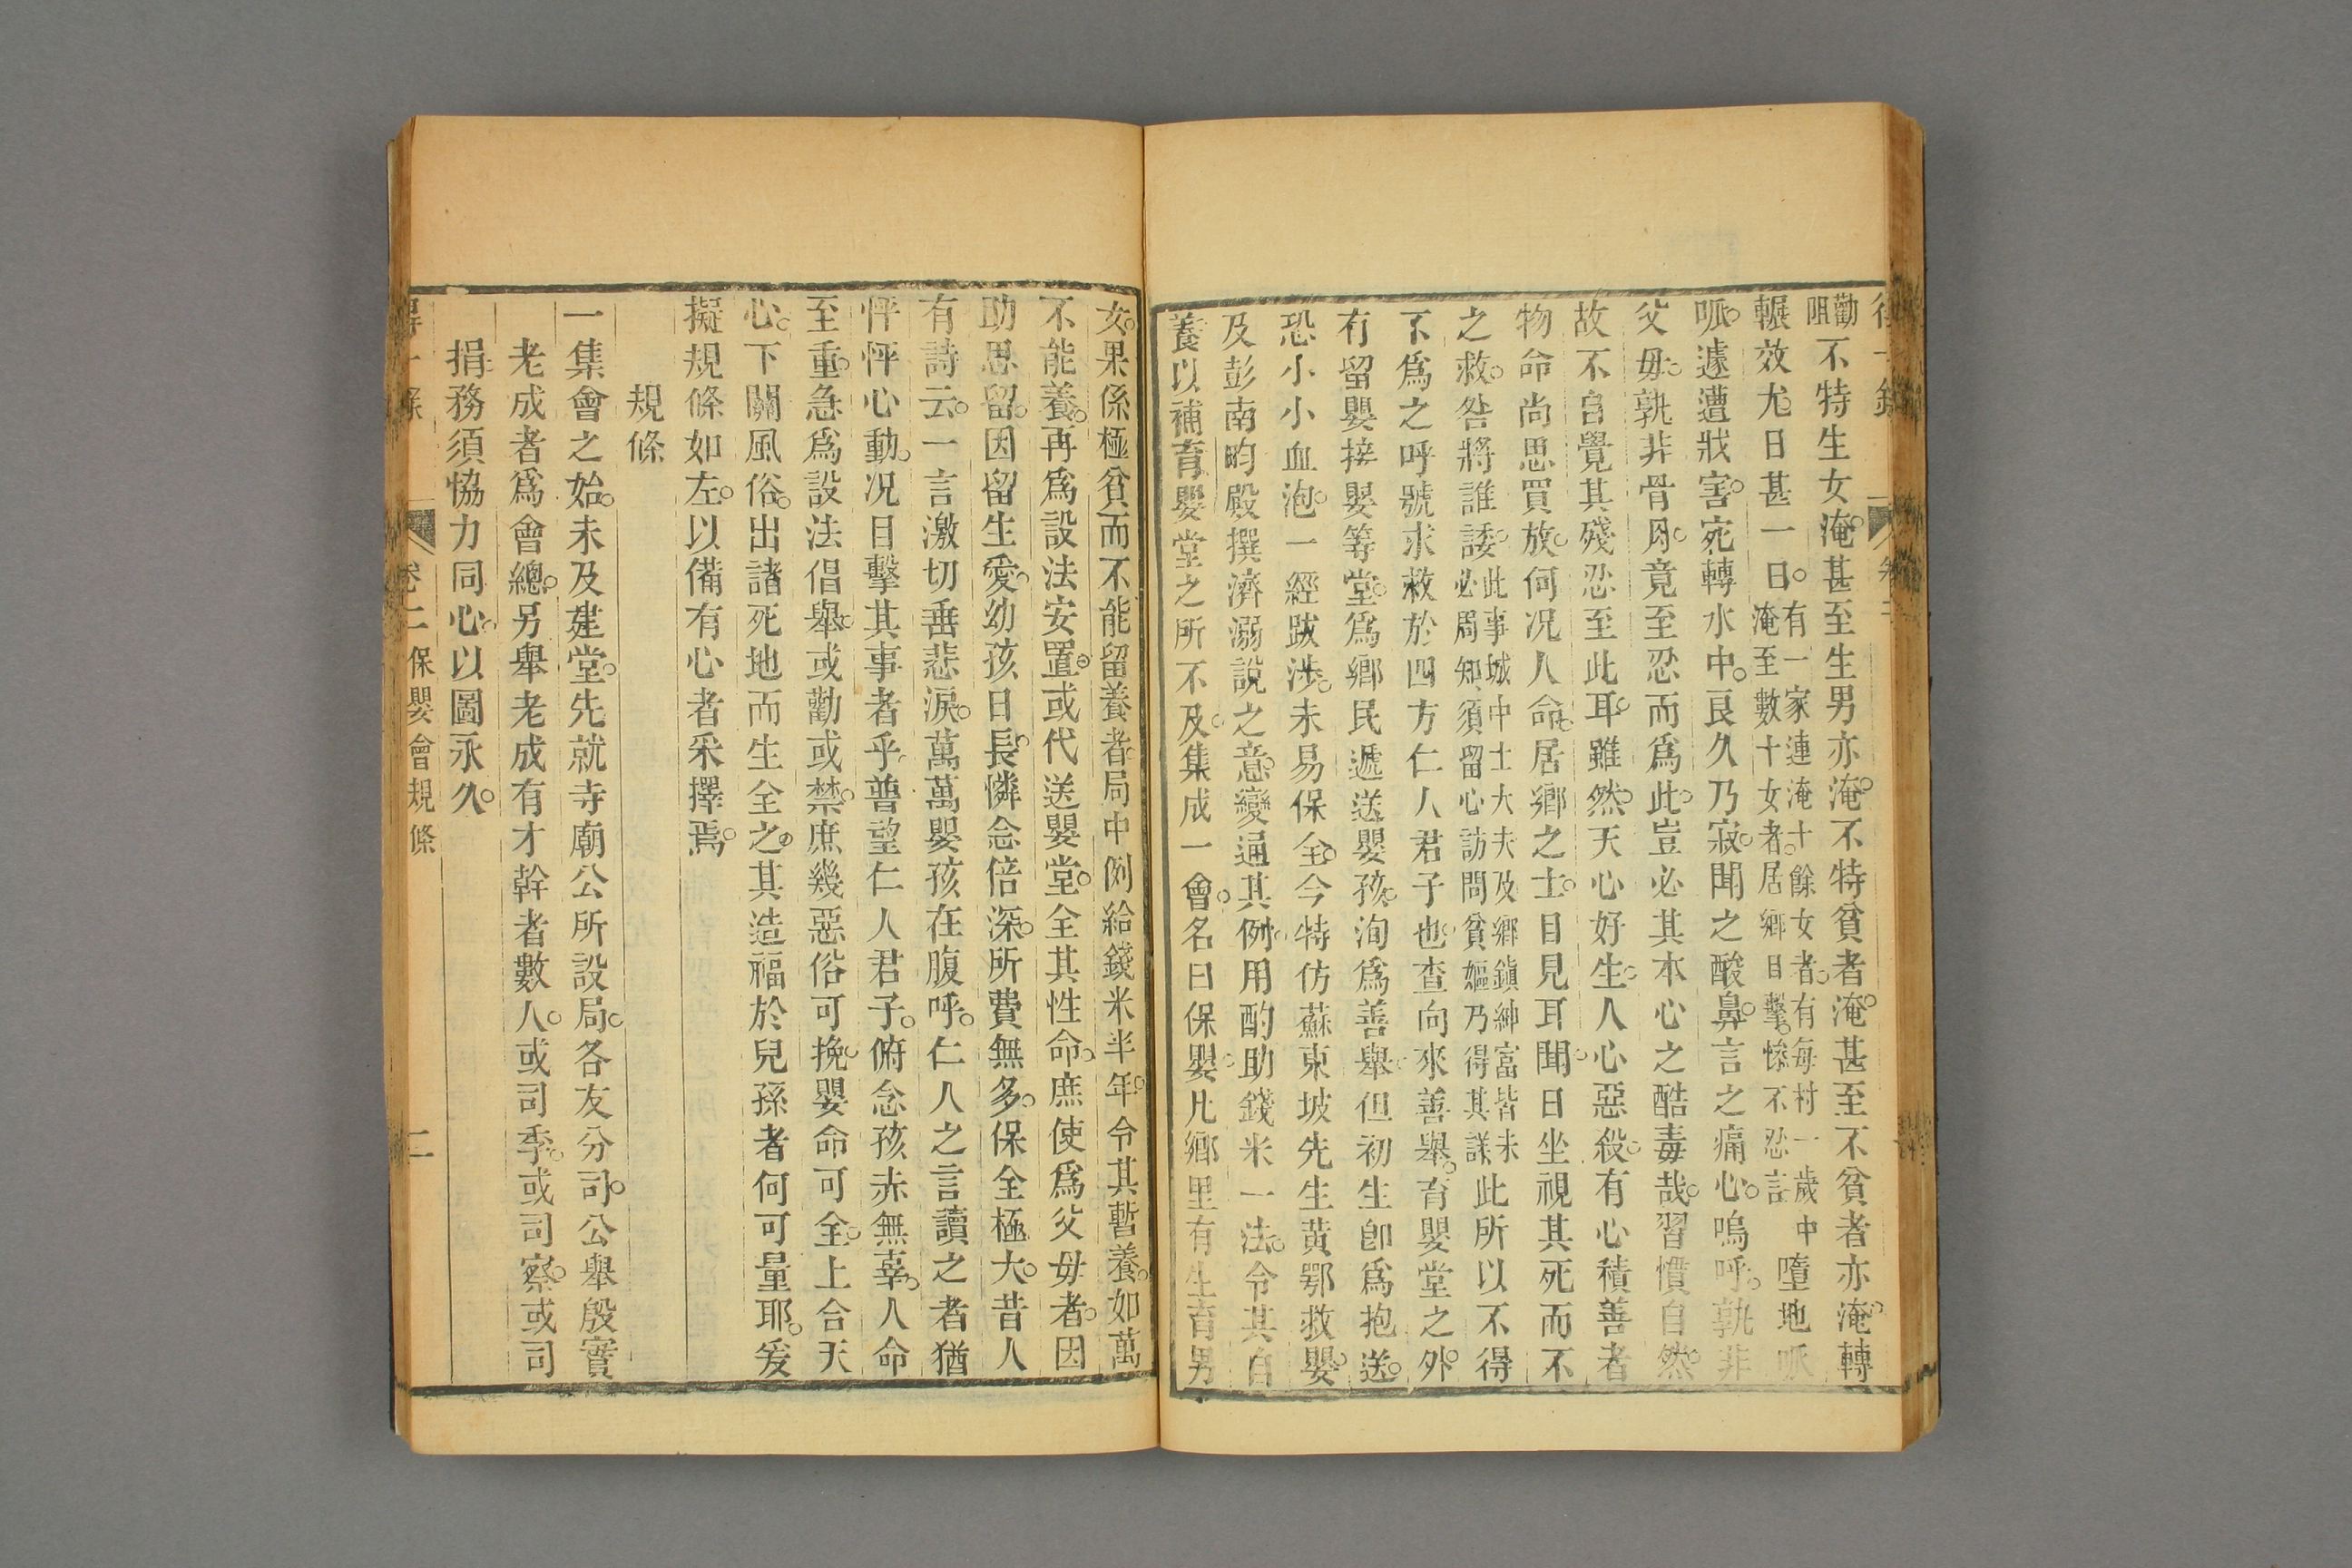 勸不特生女淹甚至生男亦淹不特貧者淹甚至不貧者亦淹轉
阻
輾效尤日甚一日有一家連淹十餘女者有每村一歲中墮地呱
淹至數十女者居鄉目擊慘不忍言
呱遽遭戕害宛轉水中良久乃寂聞之酸鼻言之痛心嗚呼孰非
父母孰非骨肉竟至忍而爲此豈必其本心之酷毒哉習慣自然
故不自覺其殘忍至此耳雖然天心好生人心惡殺有心積善者
物命尚思買放何况人命居鄉之士目見耳聞日坐視其死而不
之救咎將誰諉此事城中士大夫及鄉鎮紳富皆未此所以不得
必周知須留心訪問貧嫗乃得其詳
不爲之呼號求救於四方仁人君子也查向來善舉育嬰堂之外
有留嬰接嬰等堂爲鄉民遞送嬰孩洵爲善舉但初生卽爲抱送
恐小小血泡一經跋涉未易保全今特仿蘇東坡先生黃鄂救嬰
及彭南畇殿撰濟溺說之意變通其例用酌助錢米一法令其自
養以補育嬰堂之所不及集成一會名曰保嬰凡鄉里有生育男
女果係極貧而不能留養者局中例給錢米半年令其暫養如萬
不能養再爲設法安置或代送嬰堂全其性命庶使爲父母者因
助思留因留生愛幼孩日長憐念倍深所費無多保全極大昔人
有詩云一言激切垂悲淚萬萬嬰孩在腹呼仁人之言讀之者猶
怦怦心動况目擊其事者乎普望仁人君子俯念孩赤無辜人命
至重急爲設法倡舉或勸或禁庶幾惡俗可挽嬰命可全上合天
心下關風俗出諸死地而生全之其造福於兒孫者何可量耶爰
擬規條如左以備有心者采擇焉
規條
一集會之始未及建堂先就寺廟公所設局各友分司公舉殷實
老成者爲會總另舉老成有才幹者數人或司季或司察或司
捐務須恊力同心以圖永久
卷二保嬰會規條　二